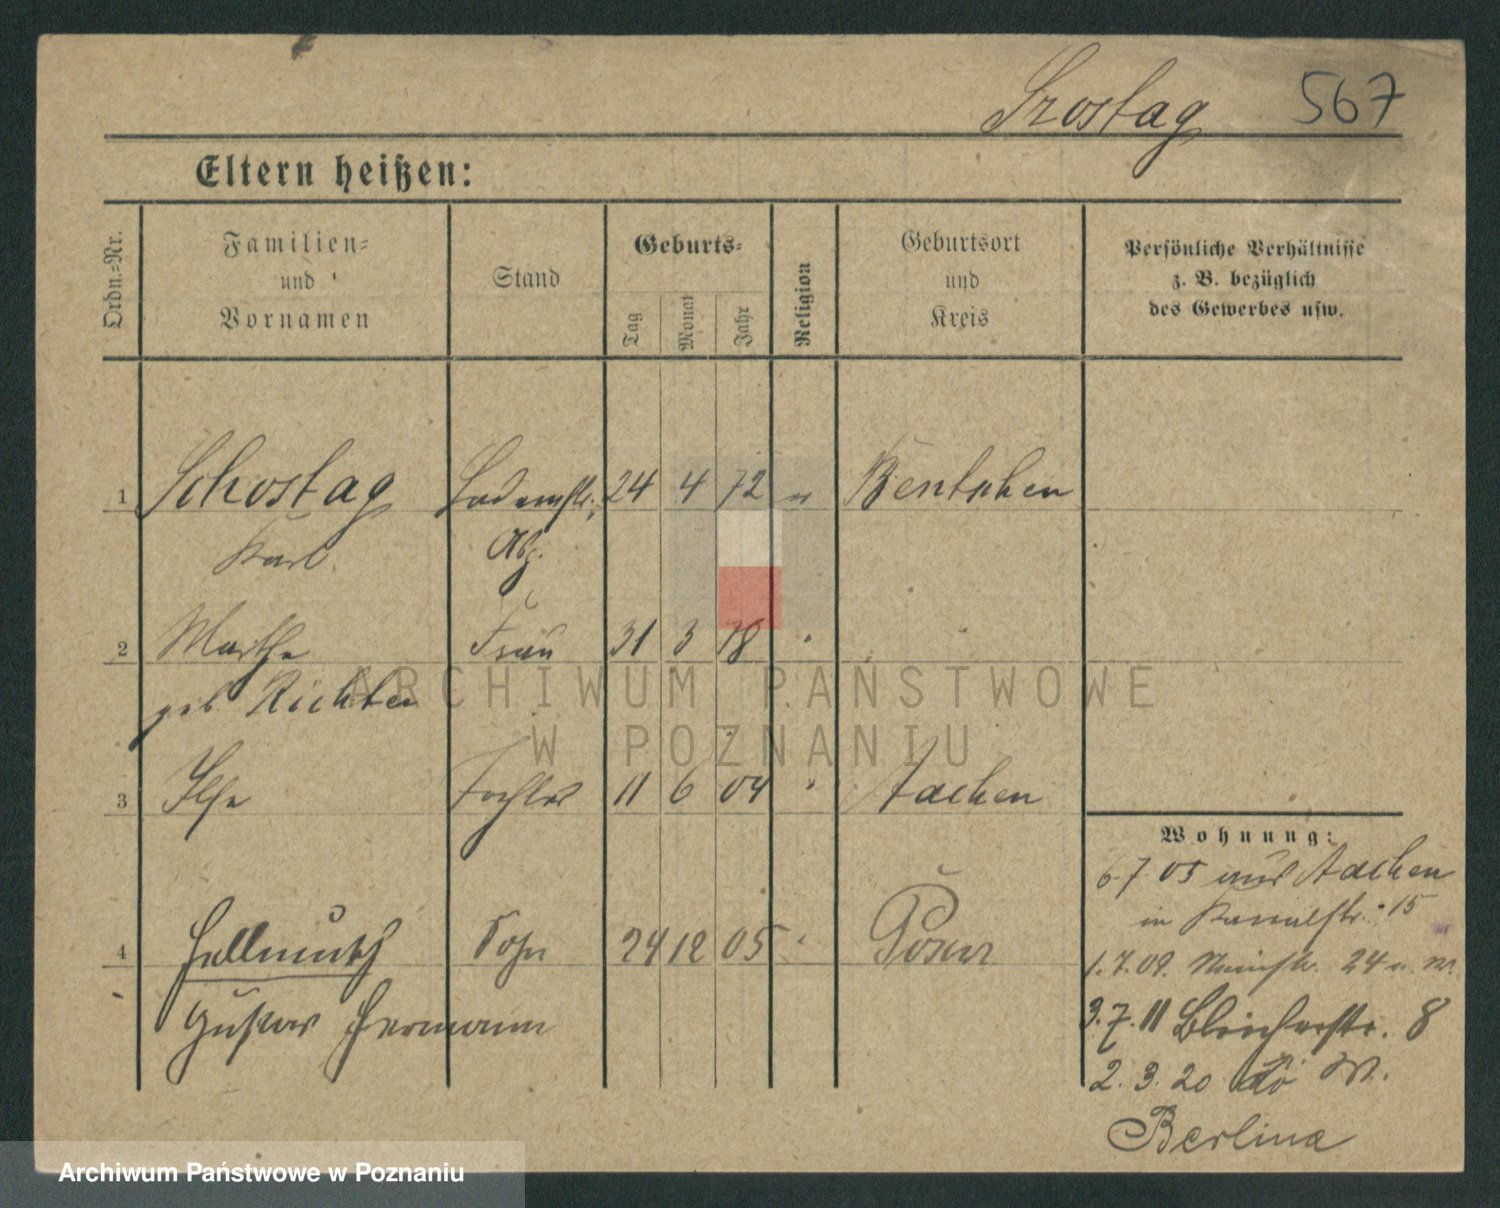 Szostag 567
Eltern heißen:
Ordn.-Nr.
Familien-
und
Vornamen
Stand
Geburts-
Tag
Monat
Jahr
Religion
Geburtsort
und
Kreis
Persönliche Verhältnisse
z. B. bezüglich
des Gewerbes usw.
1 Schostag 24 4 72 Bentschen
Karl
2 Marthe Frau 31 3 78 "
geb Richter
3 Ilse Tochter 11 6 04 " Aachen
4 Hellmuth Sohn 24 12 05 " Posen
Gustav Hermann
Wohnung:
6. 7 05 aus Aachen
in Kanalstr. 15
1. 7. 09. 24
3. 7. 11 Bleicherstr. 8
2. 3. 20 do
Berlina
ARCHIWUM PAŃSTWOWE
W POZNANIU
Archiwum Państwowe w Poznaniu